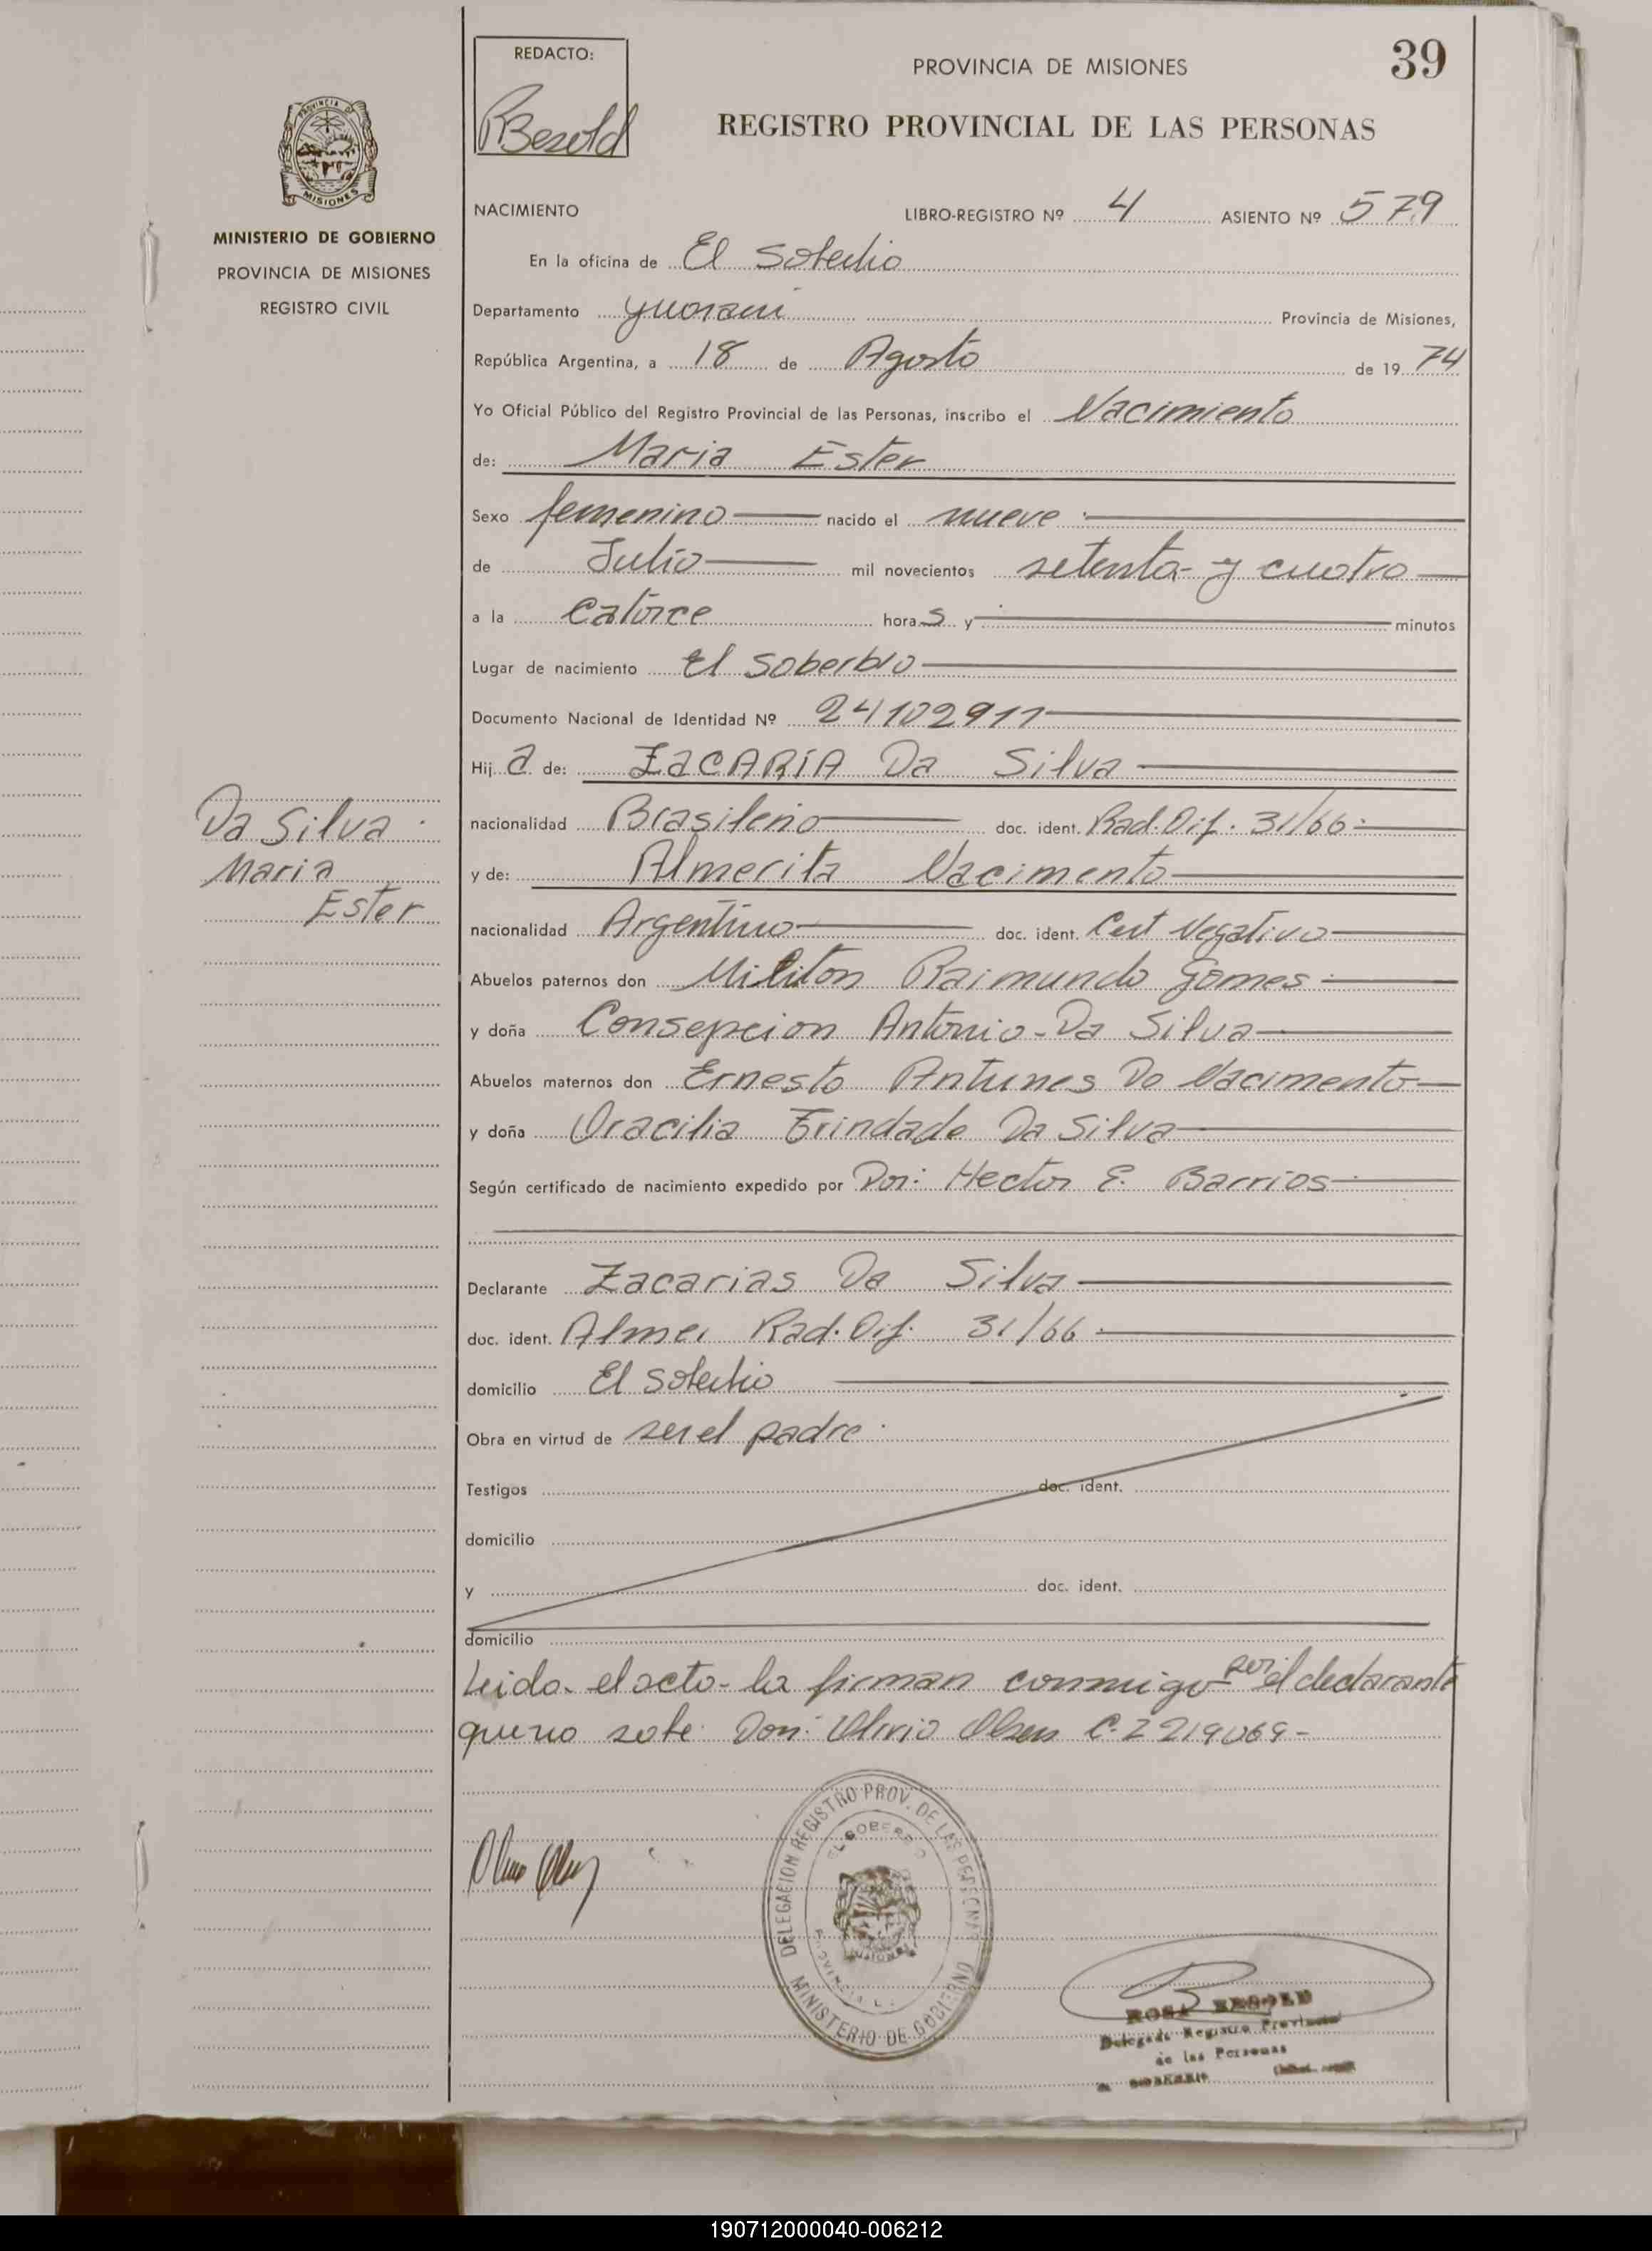 39
REDACTO:
RBesold
PROVINCIA DE MISIONES
REGISTRO PROVINCIAL DE LAS PERSONAS
PROVINCIA DE
MISIONES
MINISTERIO DE GOBIERNO
PROVINCIA DE MISIONES
REGISTRO CIVIL
NACIMIENTO LIBRO-REGISTRO Nº 4 ASIENTO Nº 579
En la oficina de El Soberbio
Departamento Guarani Provincia de Misiones,
República Argentina, a 18 de Agosto de 19 74
Yo Oficial Público del Registro Provincial de las Personas, inscribo el Nacimiento
de: Maria Ester
Sexo femenino nacido el nueve
de Julio mil novecientos setenta y cuatro
a la catorce horas y minutos
Lugar de nacimiento El Soberbio
Documento Nacional de Identidad Nº 24102911
Hija de: ZACARIA Da Silva
nacionalidad Brasileño doc. ident. Rad. Dif. 31/66
y de: Almerita Nacimento
nacionalidad Argentino doc. ident. Cert Negativo
Abuelos paternos don Militon Raimundo Gomes
y doña Consepcion Antonio Da Silva
Abuelos maternos don Ernesto Antunes Do Nacimento
y doña Oracilia Trindade Da Silva
Según certificado de nacimiento expedido por Don: Hector E. Barrios
Da Silva
Maria
Ester
Declarante Zacarias Da Silva
doc. ident. Rad. Dif. 31/66
domicilio El Soberbio
Obra en virtud de ser el padre
Testigos doc. ident.
domicilio
y doc. ident.
domicilio
Leida el acta la firman conmigo por el declarante
que no sabe Don: Olivio Olsen C. I 219069-
DELEGACION REGISTRO PROV. DE LAS PERSONAS
EL SOBERBIO
MISIONES
PROVINCIAL
MINISTERIO DE GOBIERNO
ROSA BESOLD
Delegada Registro Provincial
de las Personas
EL SOBERBIO
190712000040-006212